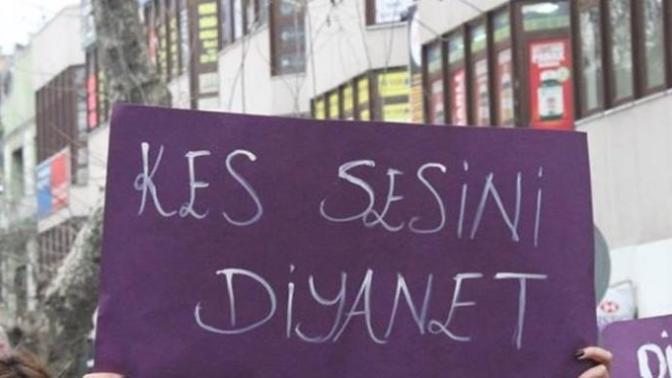 KES SESİNİ
DİYANET